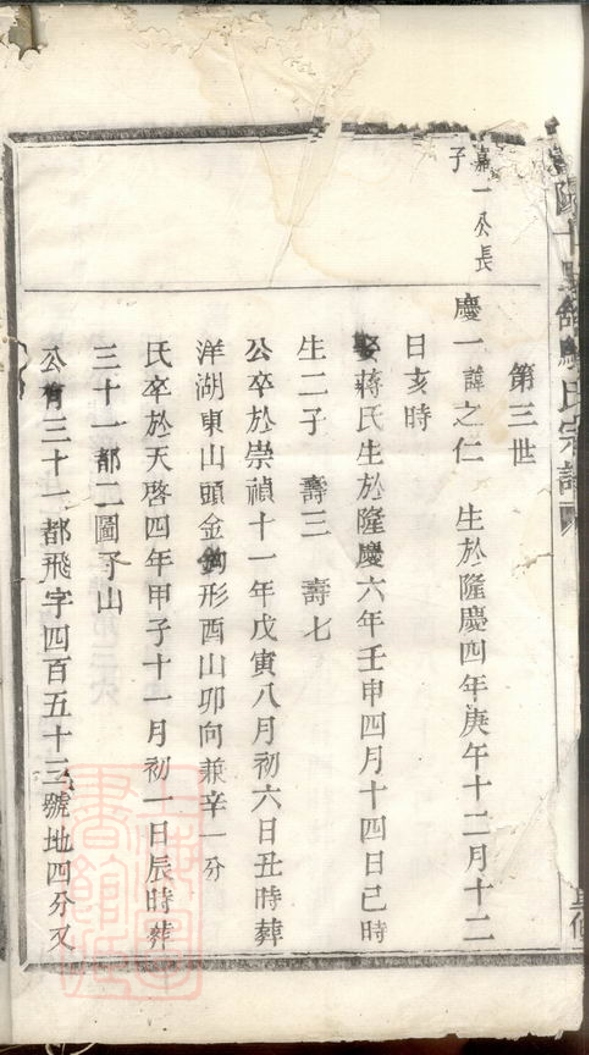 嘉一公長
子
第三世
慶一諱之仁　生於隆慶四年庚午十二月十二
日亥時
娶蔣氏生於隆慶六年壬申四月十四日巳時
生二子　壽三　壽七
公卒於崇禎十一年戊寅八月初六日丑時葬
洋湖東山頭金鉤形酉山卯向兼辛一分
氏卒於天啓四年甲子十一月初一日辰時葬
三十一都二圖山
公有三十一都飛字四百五十三號地四分又
氏宗譜